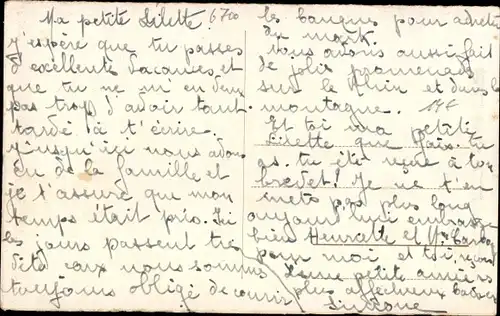 Ma petite Lilette! 6700
j'espère que tu passes
d'excellentes vacances et
que tu ne m'en veux
pas trop d'avoir tant
tardé à t'écrire.
jusqu'ici nous avons
eu de la famille et
je t'assure que mon
temps était pris. Ici
les jours passent très
vite car nous sommes
toujours obligé de courir
les banques pour acheter
du mark.
Nous avons aussi fait
de jolies promenades
sur le Rhin et dans la
montagne.
Et toi ma petite
Lisette que fais tu
as tu été reçue à ton
brevet? Je ne t'en
mets pas plus long
aujourd'hui embrasse
bien Henriette et
pour moi et toi, reçois
petite amie
plus affectueux baisers
Simone